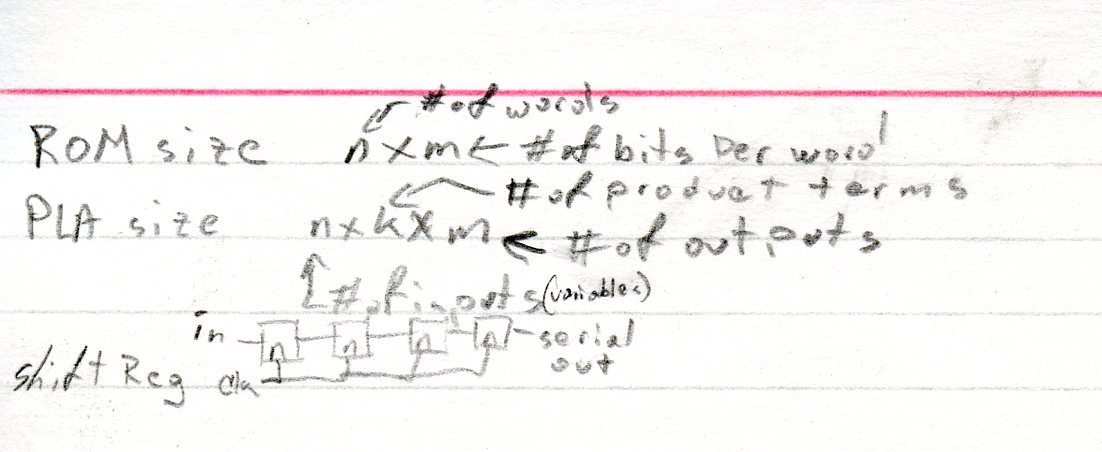 # of words
ROM size n x m ← # of bits per word
# of product terms
PLA size n x k x m ← # of outputs
# of inputs (variables)
in serial
out
shift Reg clk